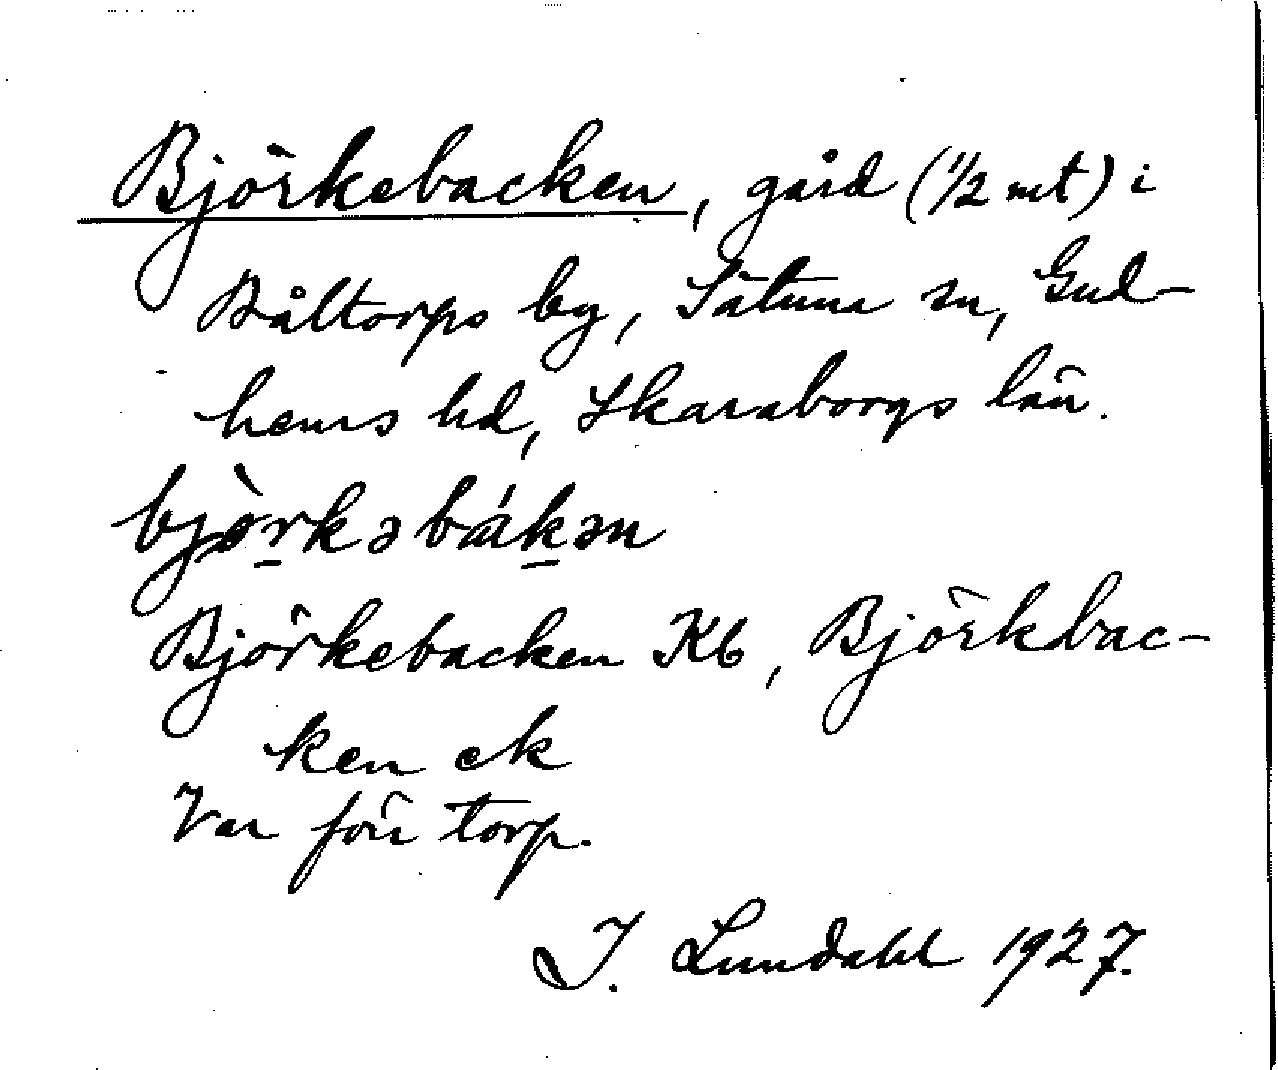 Björkebacken, gård (1/2 mt) i
Båltorps by, Sätuna sn, Gud-
hems hd, Skaraborgs län.
bjö̀rkəbákən
Björkebacken Kb, Björkbac-
ken ek
Var förr torp.
I. Lundahl 1927.